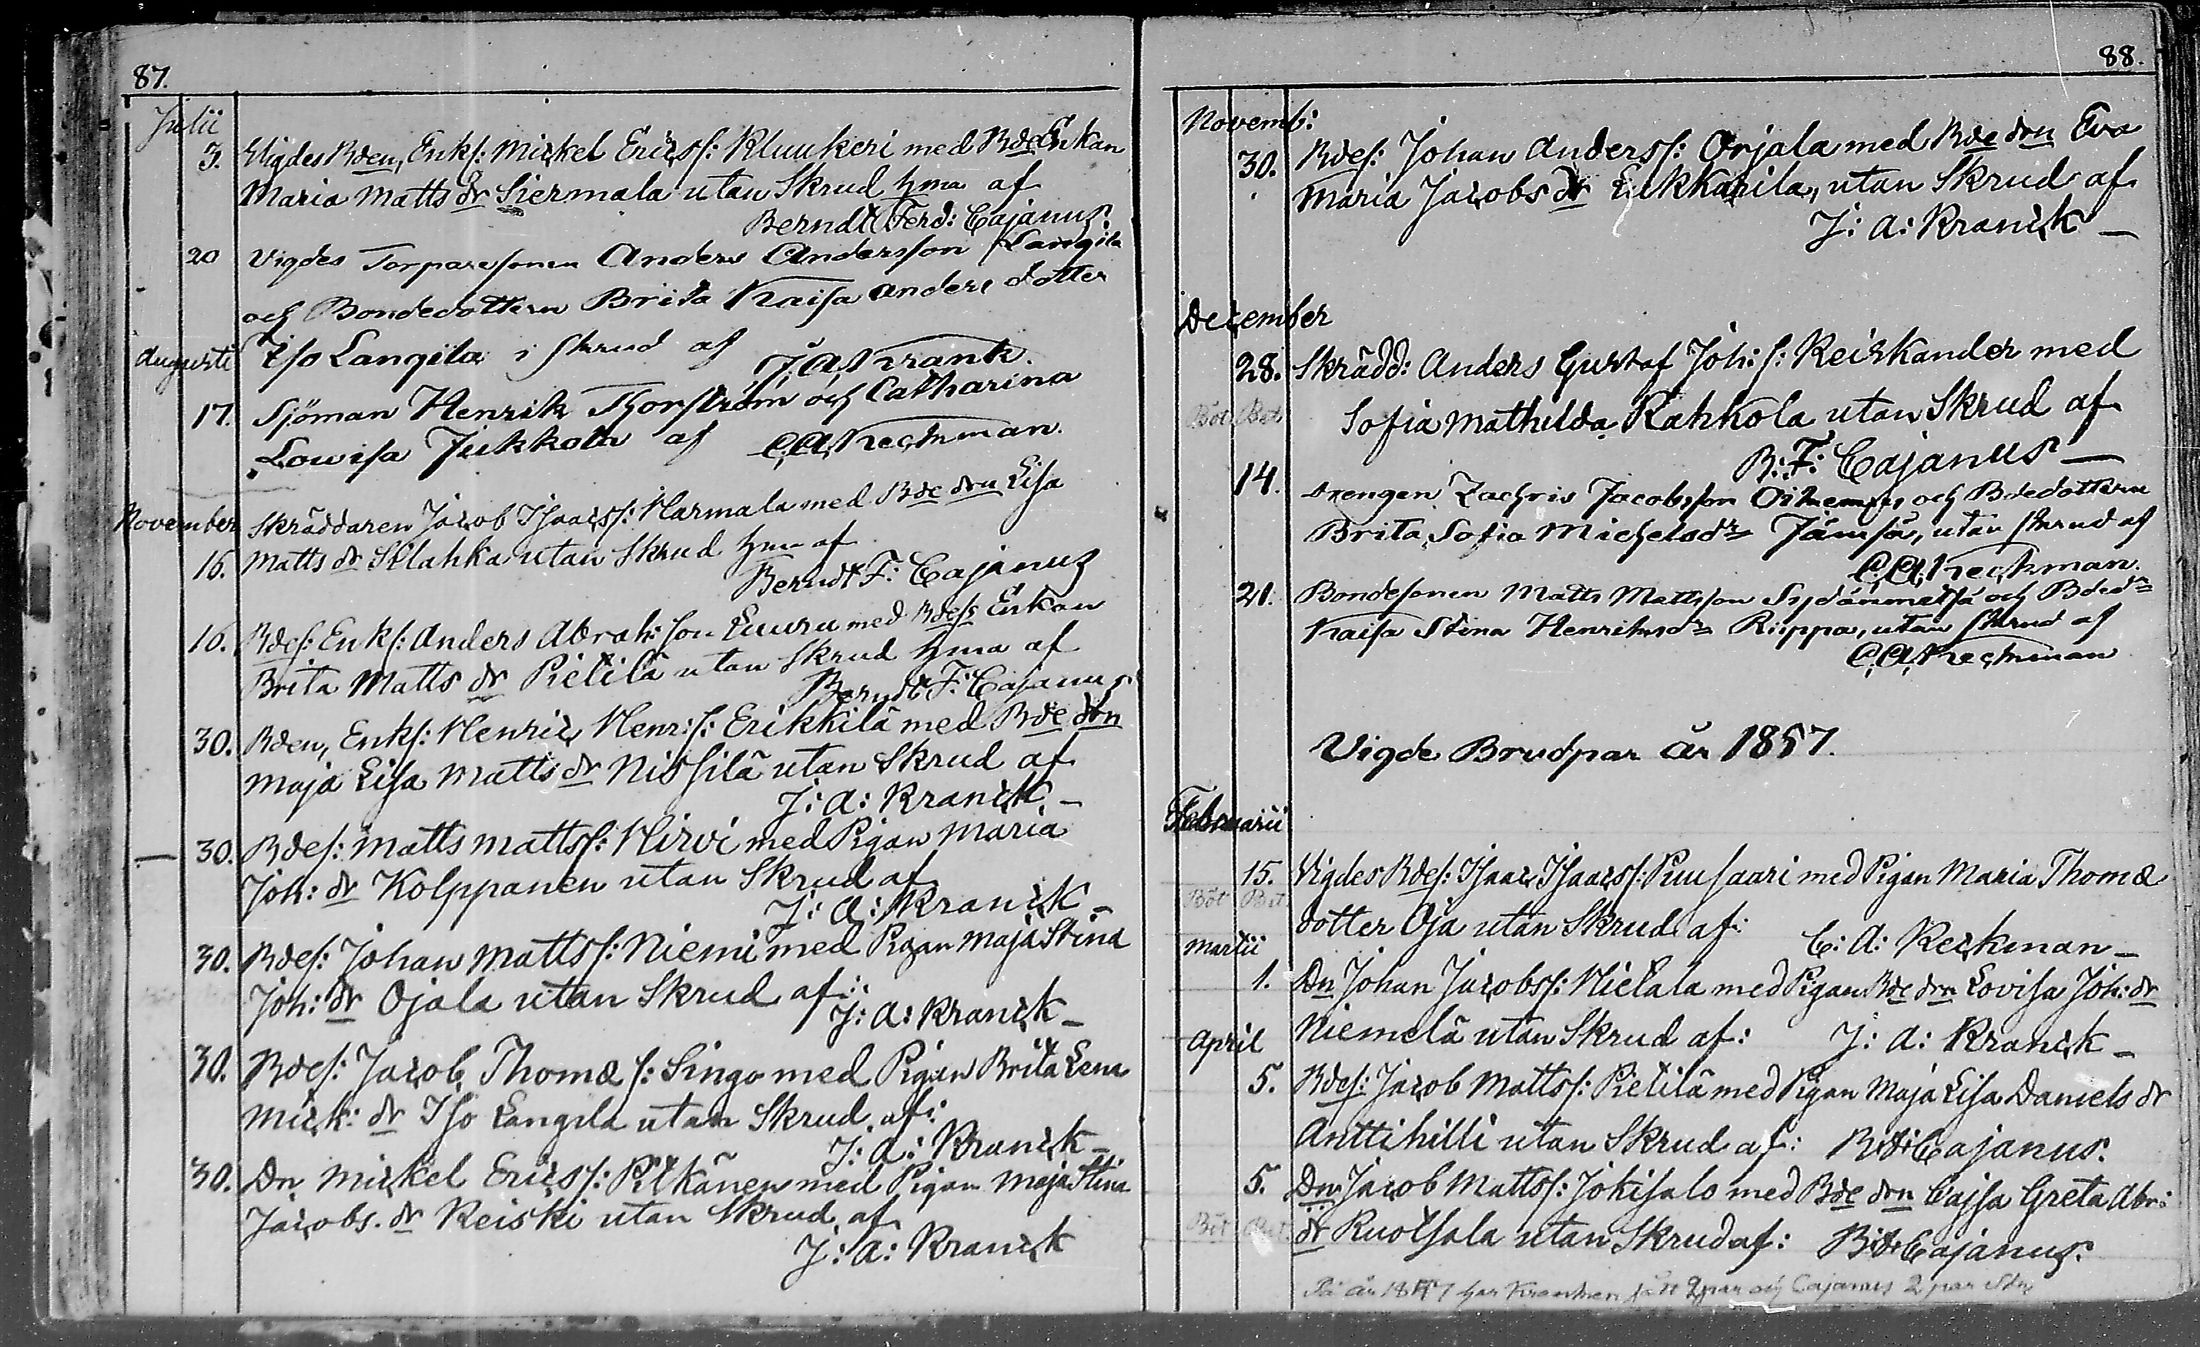 87.
Julii
3. Vigdes Bden, Enkl: Mickel Ericss: Kluukeri med Bde Enkan
Maria Matts dr Siermala utan Skrud hma af
Berndt Ferd: Cajanus.
20 Vigdes Torparesonen Anders Andersson Langila
och Bondedottern Brita Kaisa Anders dotter
Iso Langila i skrud af J.A. Krank.
Augusti
17. Sjöman Henrik Thorström och Catharina
Lowisa Jukkola af C.A. Keckman.
November Skräddaren Jacob Isaacss: Harmala med Bde don Lisa
16. Matts dr Sklahka utan Skrud hma af
Berndt F: Cajanus
16. Bdes: Enkl: Anders Abrah: son Luuru med Bdes Enkan
Brita Matts dr Pietilä utan Skrud hma af
Berndt F: Cajanus
30. Bden, Enkl: Henric Henr: s: Erikkilä med Bde don
Maja Lisa Matts dr Nissilä utan Skrud af
J: A: Kranck –
– 30. Bdes: Matts Mattss: Hirvi med Pigan Maria
Joh: dr Kolppanen utan Skrud af
J: A: Kranck –
30. Bdes: Johan Mattss: Niemi med Pigan Maja Stina
Joh: dr Ojala utan Skrud af:
J: A: Kranck –
30. Bdes: Jacob Thomæ s: Singo med Pigan Brita Lena
Mick: dr Iso Langila utan Skrud af:
J: A: Kranck –
30. Dn Mickel Ericss: Pitkänen med Pigan Maja Stina
Jacobs. dr Keiski utan Skrud af
J: A: Kranck
88.
Novemb:
30. Bdes: Johan Anderss: Orjala med Bde don Eva
Maria Jacobs dr Lukkarila, utan Skrud af
J: A: Kranck –
December
28. Skrädd: Anders Gustaf Joh: s: Reiskander med
Böt Bet Sofia Mathilda Rahkola utan Skrud af
B: F: Cajanus –
14. Drengen Zachris Jacobsson och Bdedottern
Brita Sofia Michelsdr Jämsä, utan skrud af
C.A. Keckman.
21. Bondesonen Matts Mattsson Sydänmetsä och Bdedr
Kaisa Stina Henriksdr Riippa, utan skrud af
C.A. Keckman
Vigde Brudpar år 1857.
Februarii
15. Vigdes Bdes: Isaac Isaacss: Puusaari med Pigan Maria Thomæ
Böt Bet dotter Oja utan Skrud af:
C: A: Keckman –
Martii
1. Dn Johan Jacobss: Hietala med Pigan Bde don Lovisa Joh: dr
Niemelä utan Skrud af: J: A: Kranck –
April
5. Bdes: Jacob Mattss: Pietilä med Pigan Maja Lisa Daniels dr
Anttihilli utan Skrud af: B: F: Cajanus.
5. Dn: Jacob Mattss: Jokisalo med Bde don Cajsa Greta Abr:
Böt Bet dr Ruotsala utan Skrud af: B: F: Cajanus.
På år 1857 har fått 2 par och Cajanus 2 par